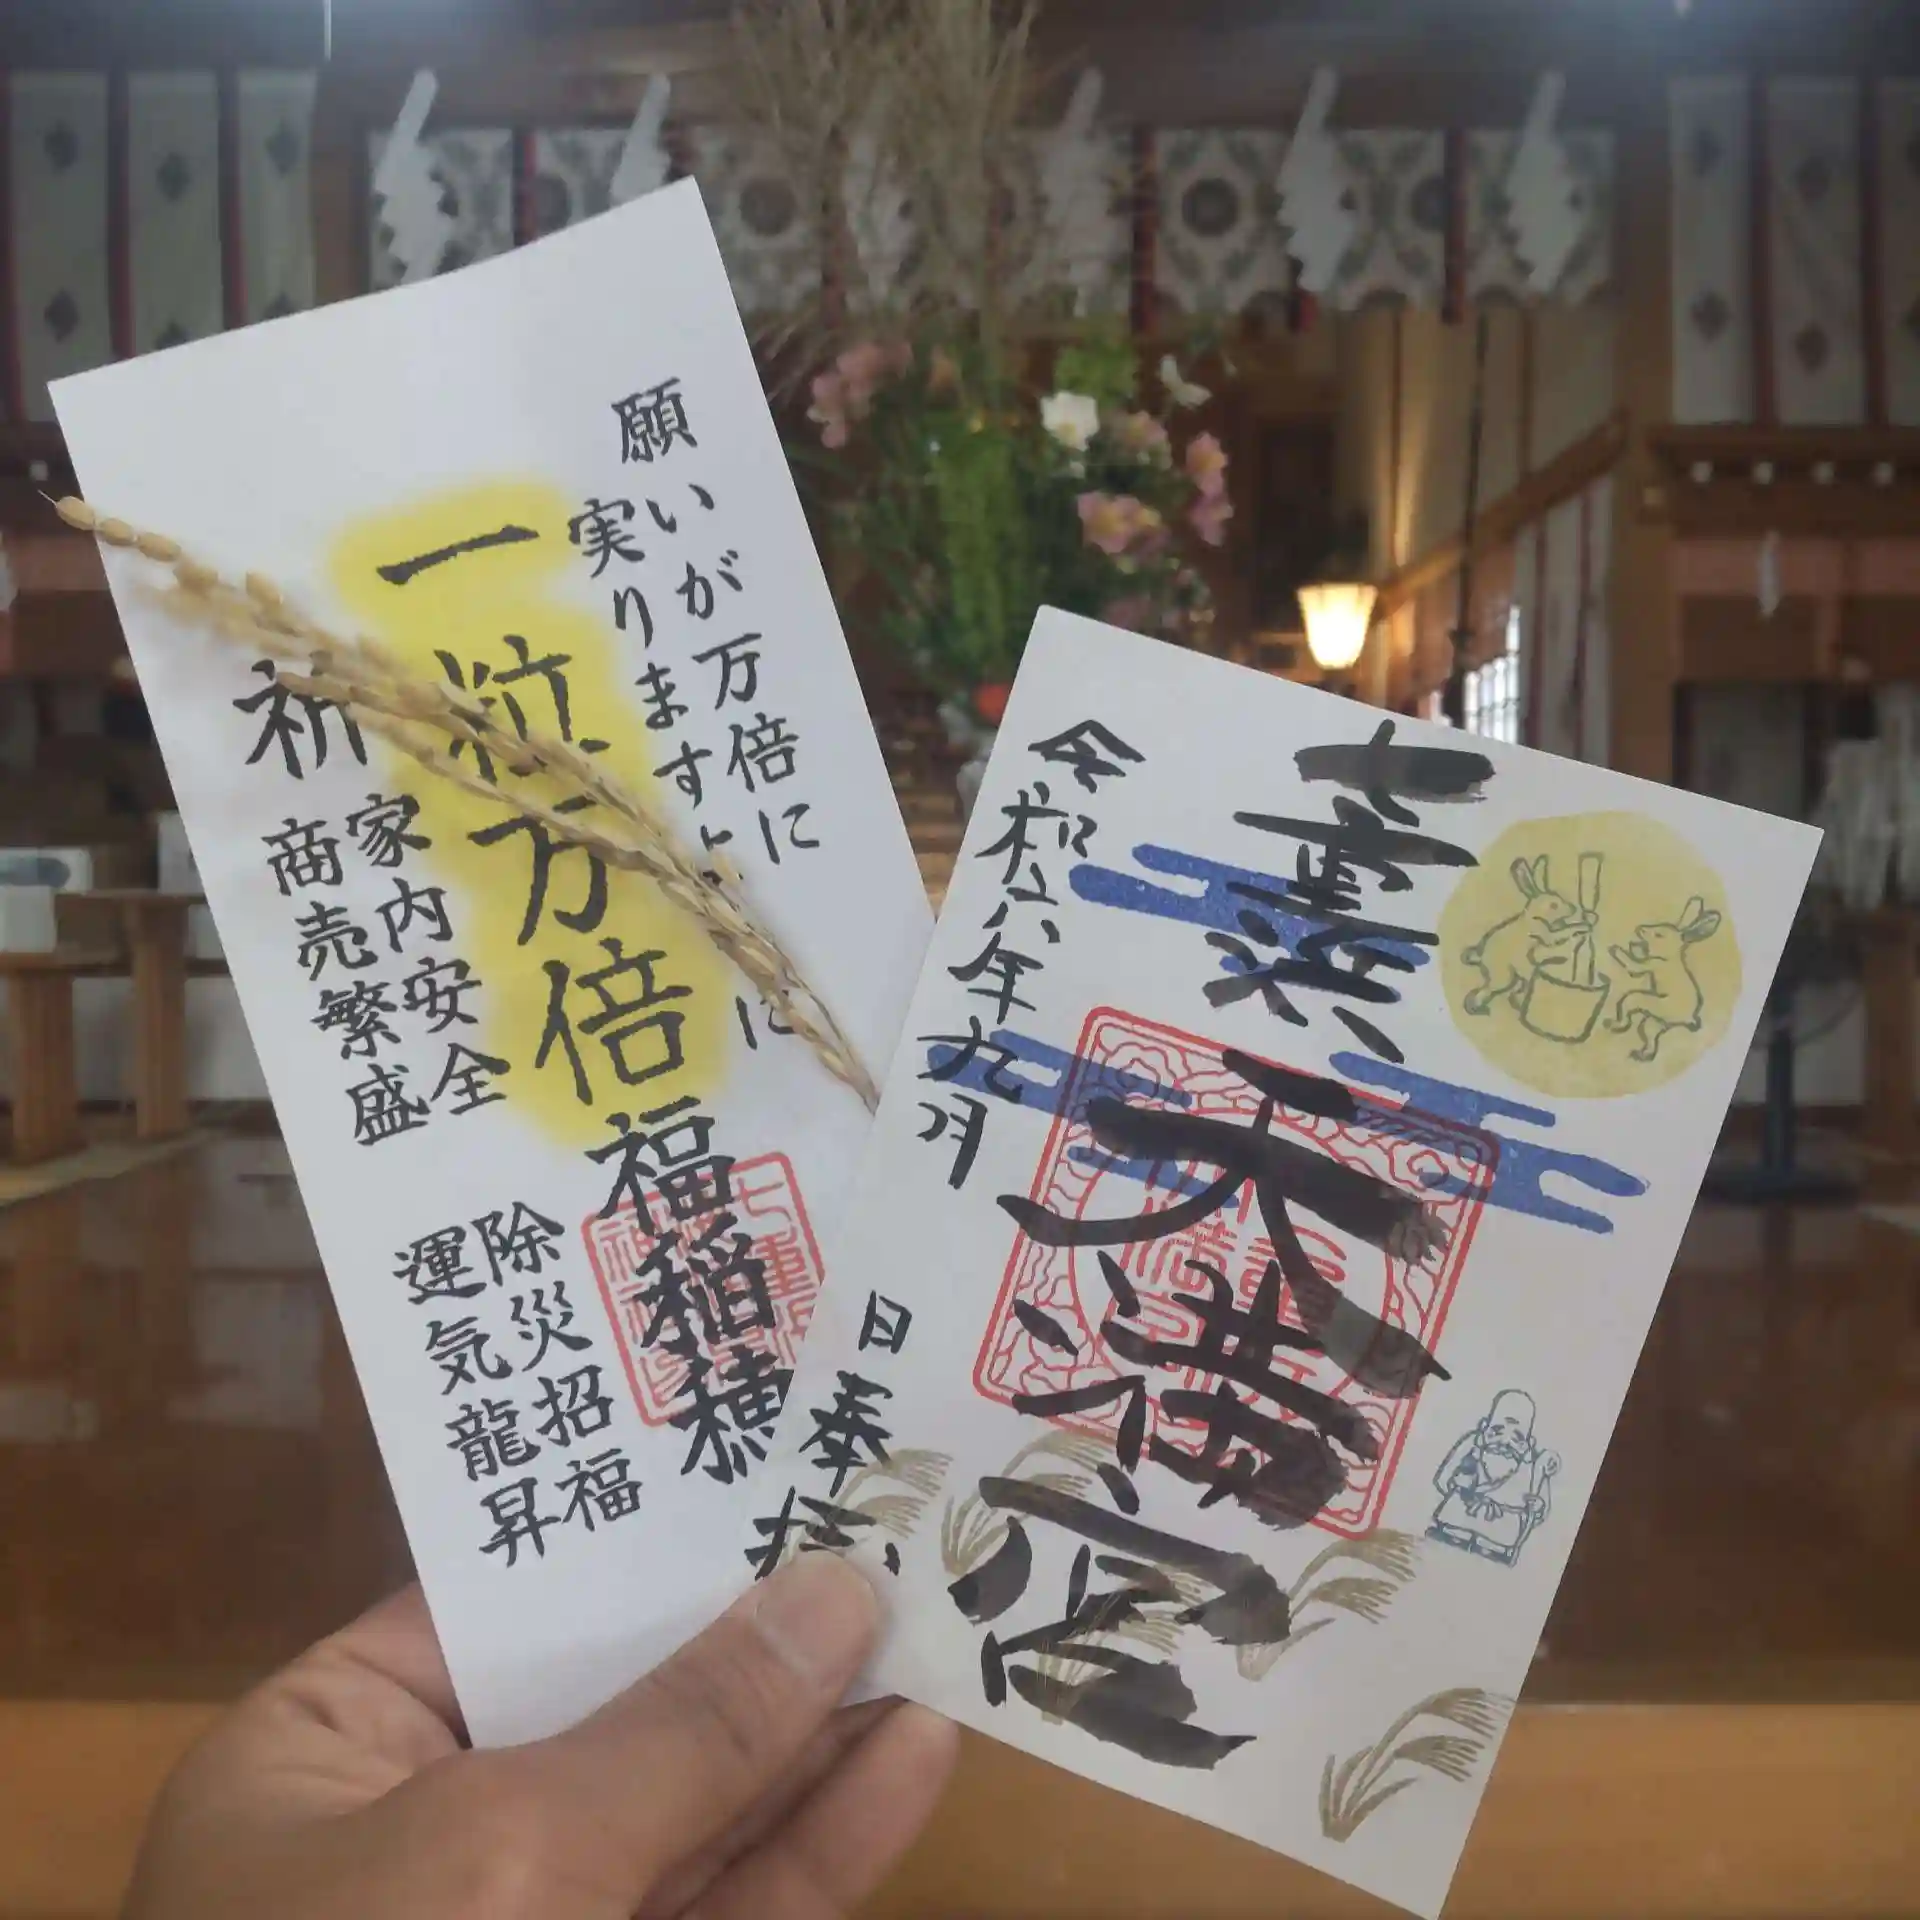 願いが万倍に
実りますように
一粒万倍
福稲穂
祈
家内安全
商売繁盛
除災招福
運気龍昇
七重浜
天満宮
令和六年九月
日奉拝